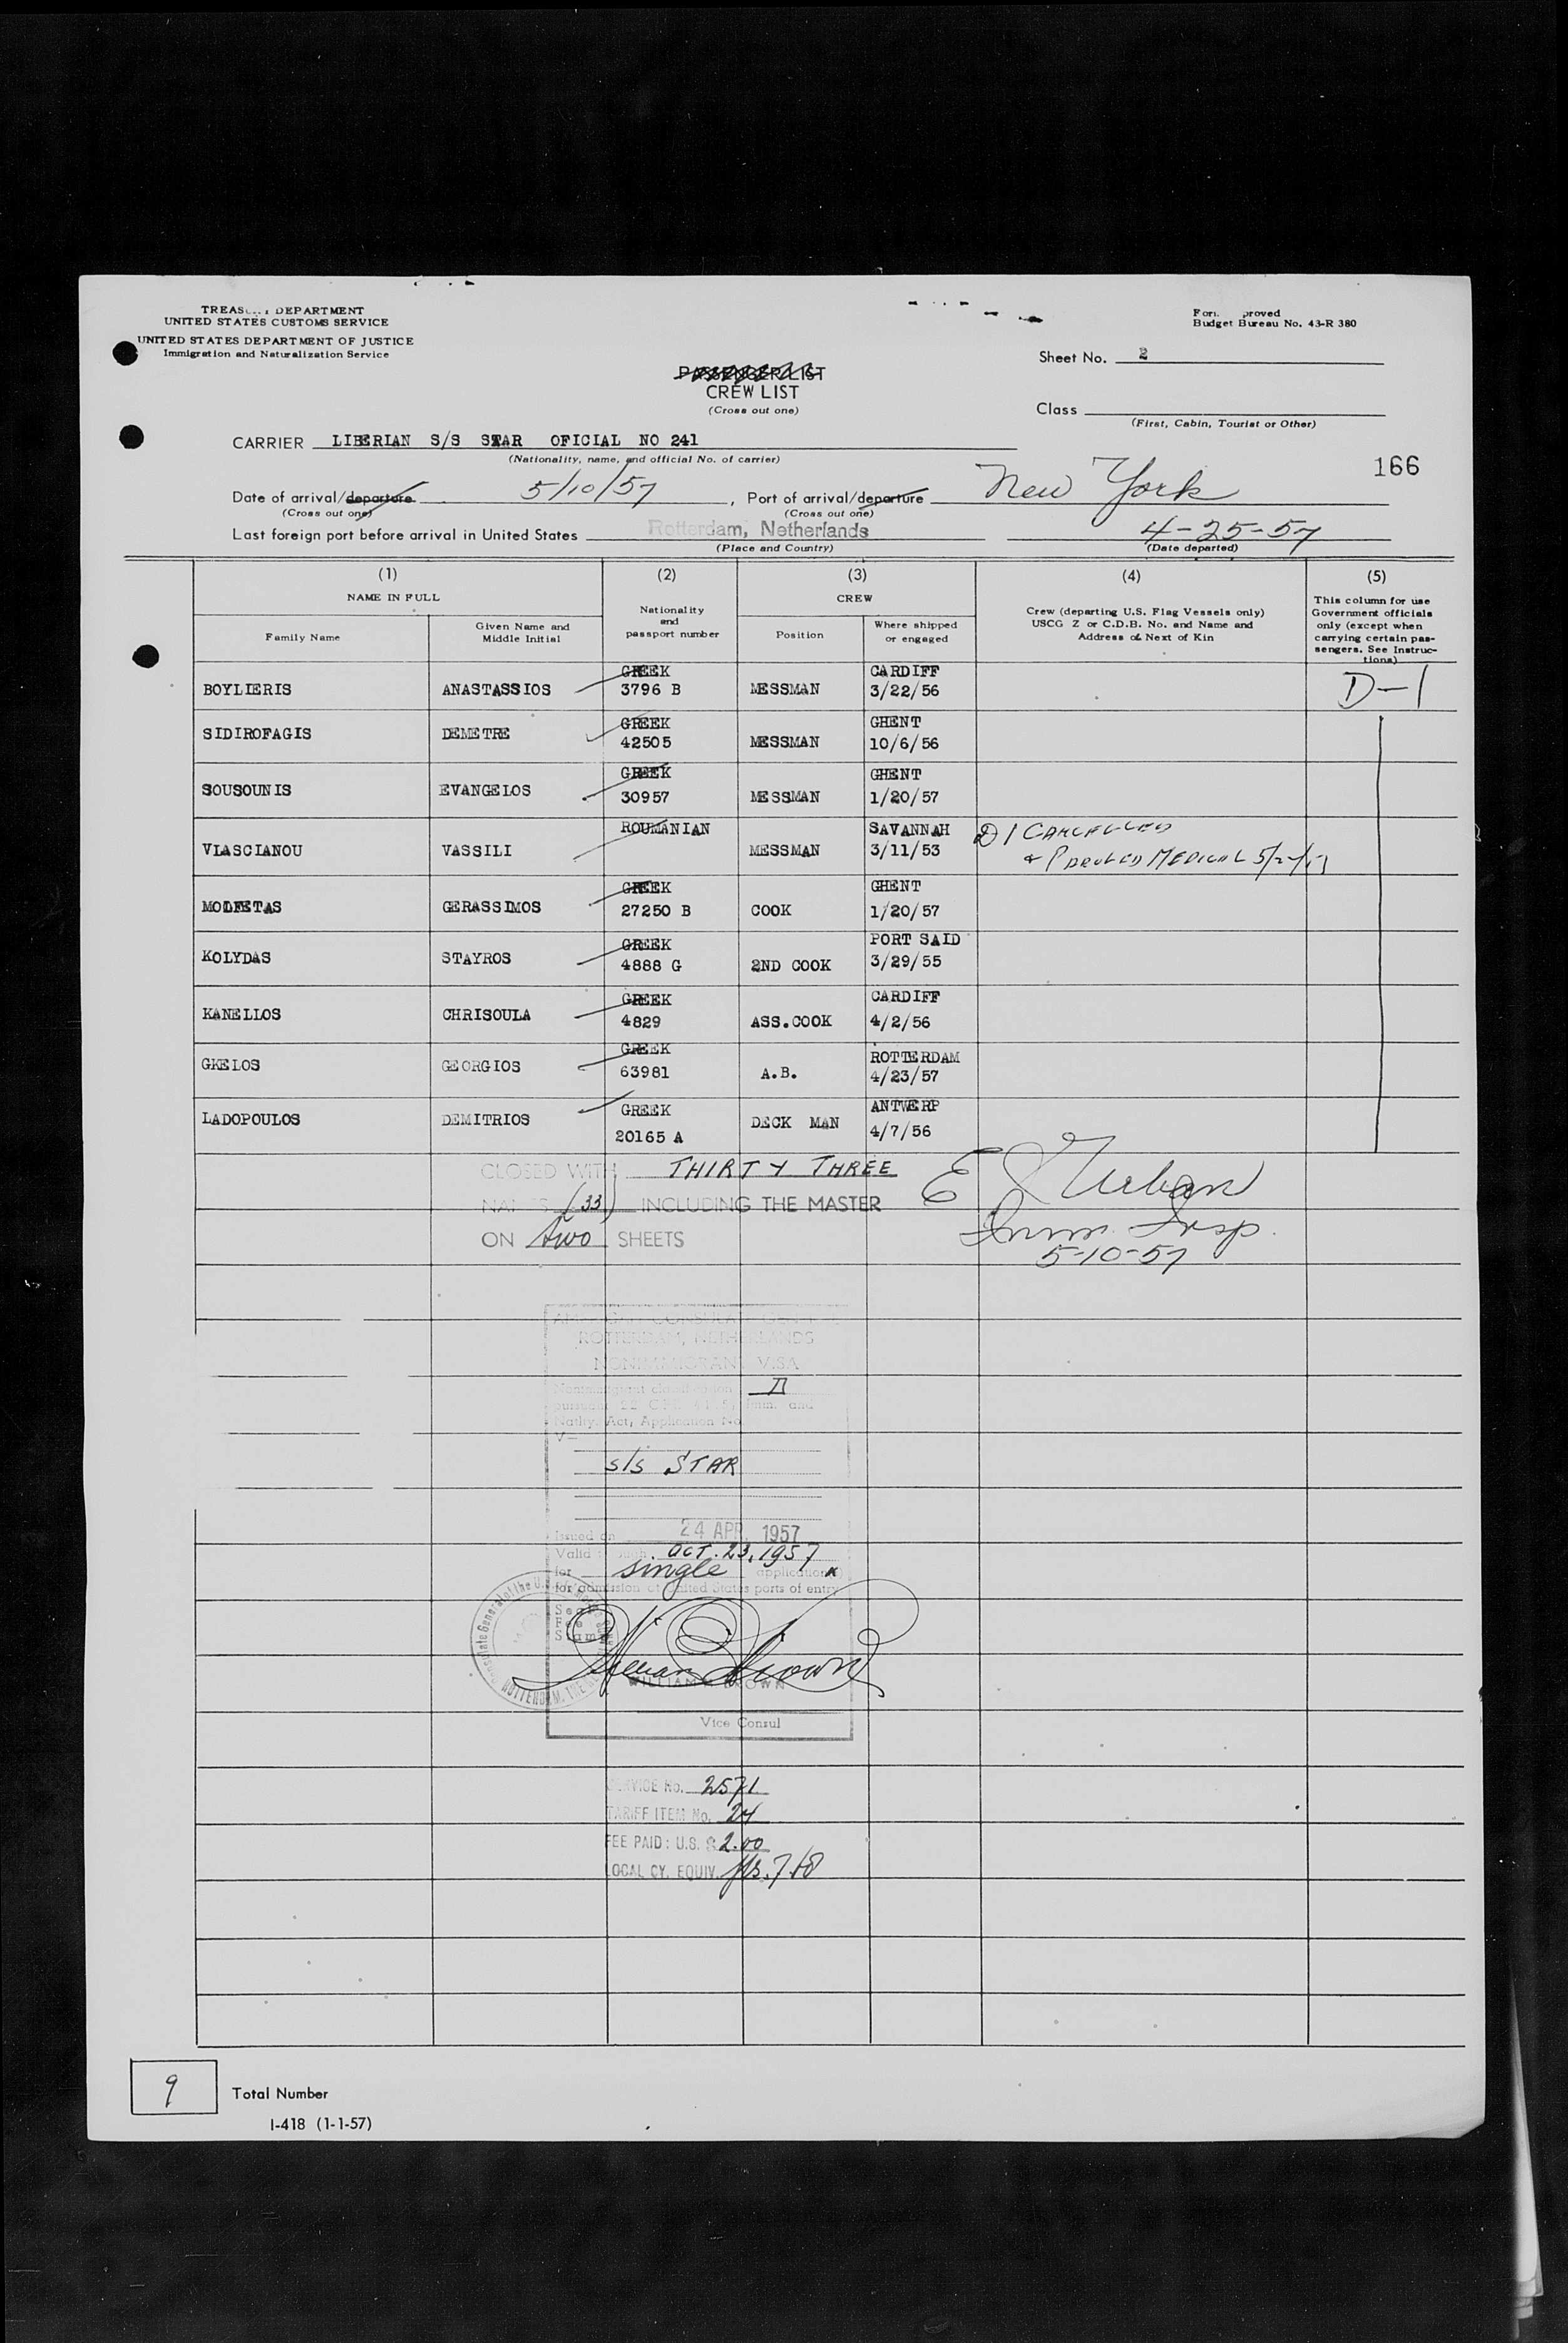 TREAS DEPARTMENT
UNITED STATES CUSTOMS SERVICE
UNITED STATES DEPARTMENT OF JUSTICE
Immigration and Naturalization Service
Form proved
Budget Bureau No. 43-R 380
Sheet No. 2
PASSENGER LIST
CREW LIST
(Cross out one)
Class
(First, Cabin, Tourist or Other)
CARRIER LIBERIAN S/S STAR OFICIAL NO 241
(Nationality, name, and official No. of carrier)
166
Date of arrival/departure 5/10/57, Port of arrival/departure New York
(Cross out one) (Cross out one)
Last foreign port before arrival in United States Rotterdam, Netherlands 4-25-57
(Place and Country) (Date departed)
(1) (2) (3) (4) (5)
NAME IN FULL CREW
Family Name
Given Name and
Middle Initial
Nationality
and
passport number
Position
Where shipped
or engaged
Crew (departing U.S. Flag Vessels only)
USCG Z or C.D.B. No. and Name and
Address of Next of Kin
This column for use
Government officials
only (except when
carrying certain pas-
sengers. See Instruc-
tions)
GREEK CARDIFF
BOYLIERIS ANASTASSIOS 3796 B MESSMAN 3/22/56 D-1
GREEK GHENT
SIDIROFAGIS DEMETRE 42505 MESSMAN 10/6/56
GREEK GHENT
SOUSOUNIS EVANGELOS 30957 MESSMAN 1/20/57
ROUMANIAN SAVANNAH D1 CANCELLED
VLASCIANOU VASSILI MESSMAN 3/11/53 & PAROLED MEDICAL
GREEK GHENT
MOLFETAS GERASSIMOS 27250 B COOK 1/20/57
GREEK PORT SAID
KOLYDAS STAYROS 4888 G 2ND COOK 3/29/55
GREEK CARDIFF
KANELLOS CHRISOULA 4829 ASS.COOK 4/2/56
GREEK ROTTERDAM
GKELOS GEORGIOS 63981 A.B. 4/23/57
GREEK ANTWERP
LADOPOULOS DEMITRIOS 20165 A DECK MAN 4/7/56
CLOSED WITH THIRTY THREE
NAMES (33) INCLUDING THE MASTER
ON two SHEETS
E Urban
Imm. Insp.
5-10-57
AMERICAN CONSULATE GENERAL
ROTTERDAM, NETHERLANDS
NONIMMIGRANT VISA
Nonimmigrant classification D
Imm. and
Natlty. Act, Application No.
V-
S/S STAR
Issued on 24 APR. 1957
Valid through OCT. 23, 1957
for single application
for admission at United States ports of entry
Seal
Fee
Stamp
William Brown
WILLIAM BROWN
Vice Consul
SERVICE No. 2571
TARIFF ITEM No. 24
FEE PAID: U.S. $ 2.00
LOCAL CY. EQUIV. fls. 7.18
9 Total Number
I-418 (1-1-57)